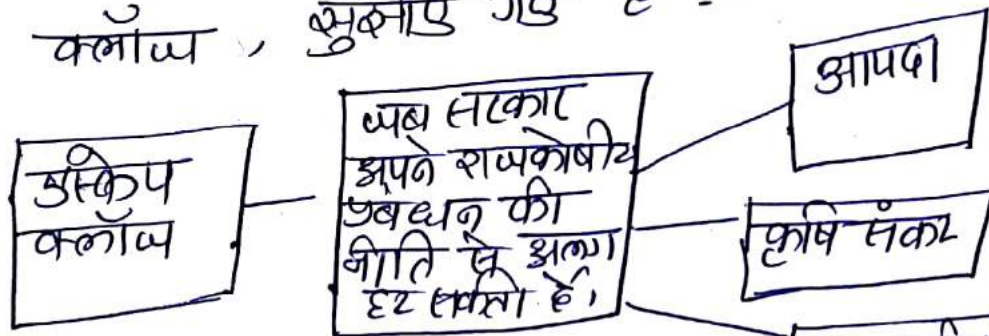 क्लॉज, सुझाए गए हैं -
एस्केप
क्लॉज
जब सरकार
अपने राजकोषीय
प्रबंधन की
नीति से अलग
हट सकती है।
आपदा
कृषि संकट